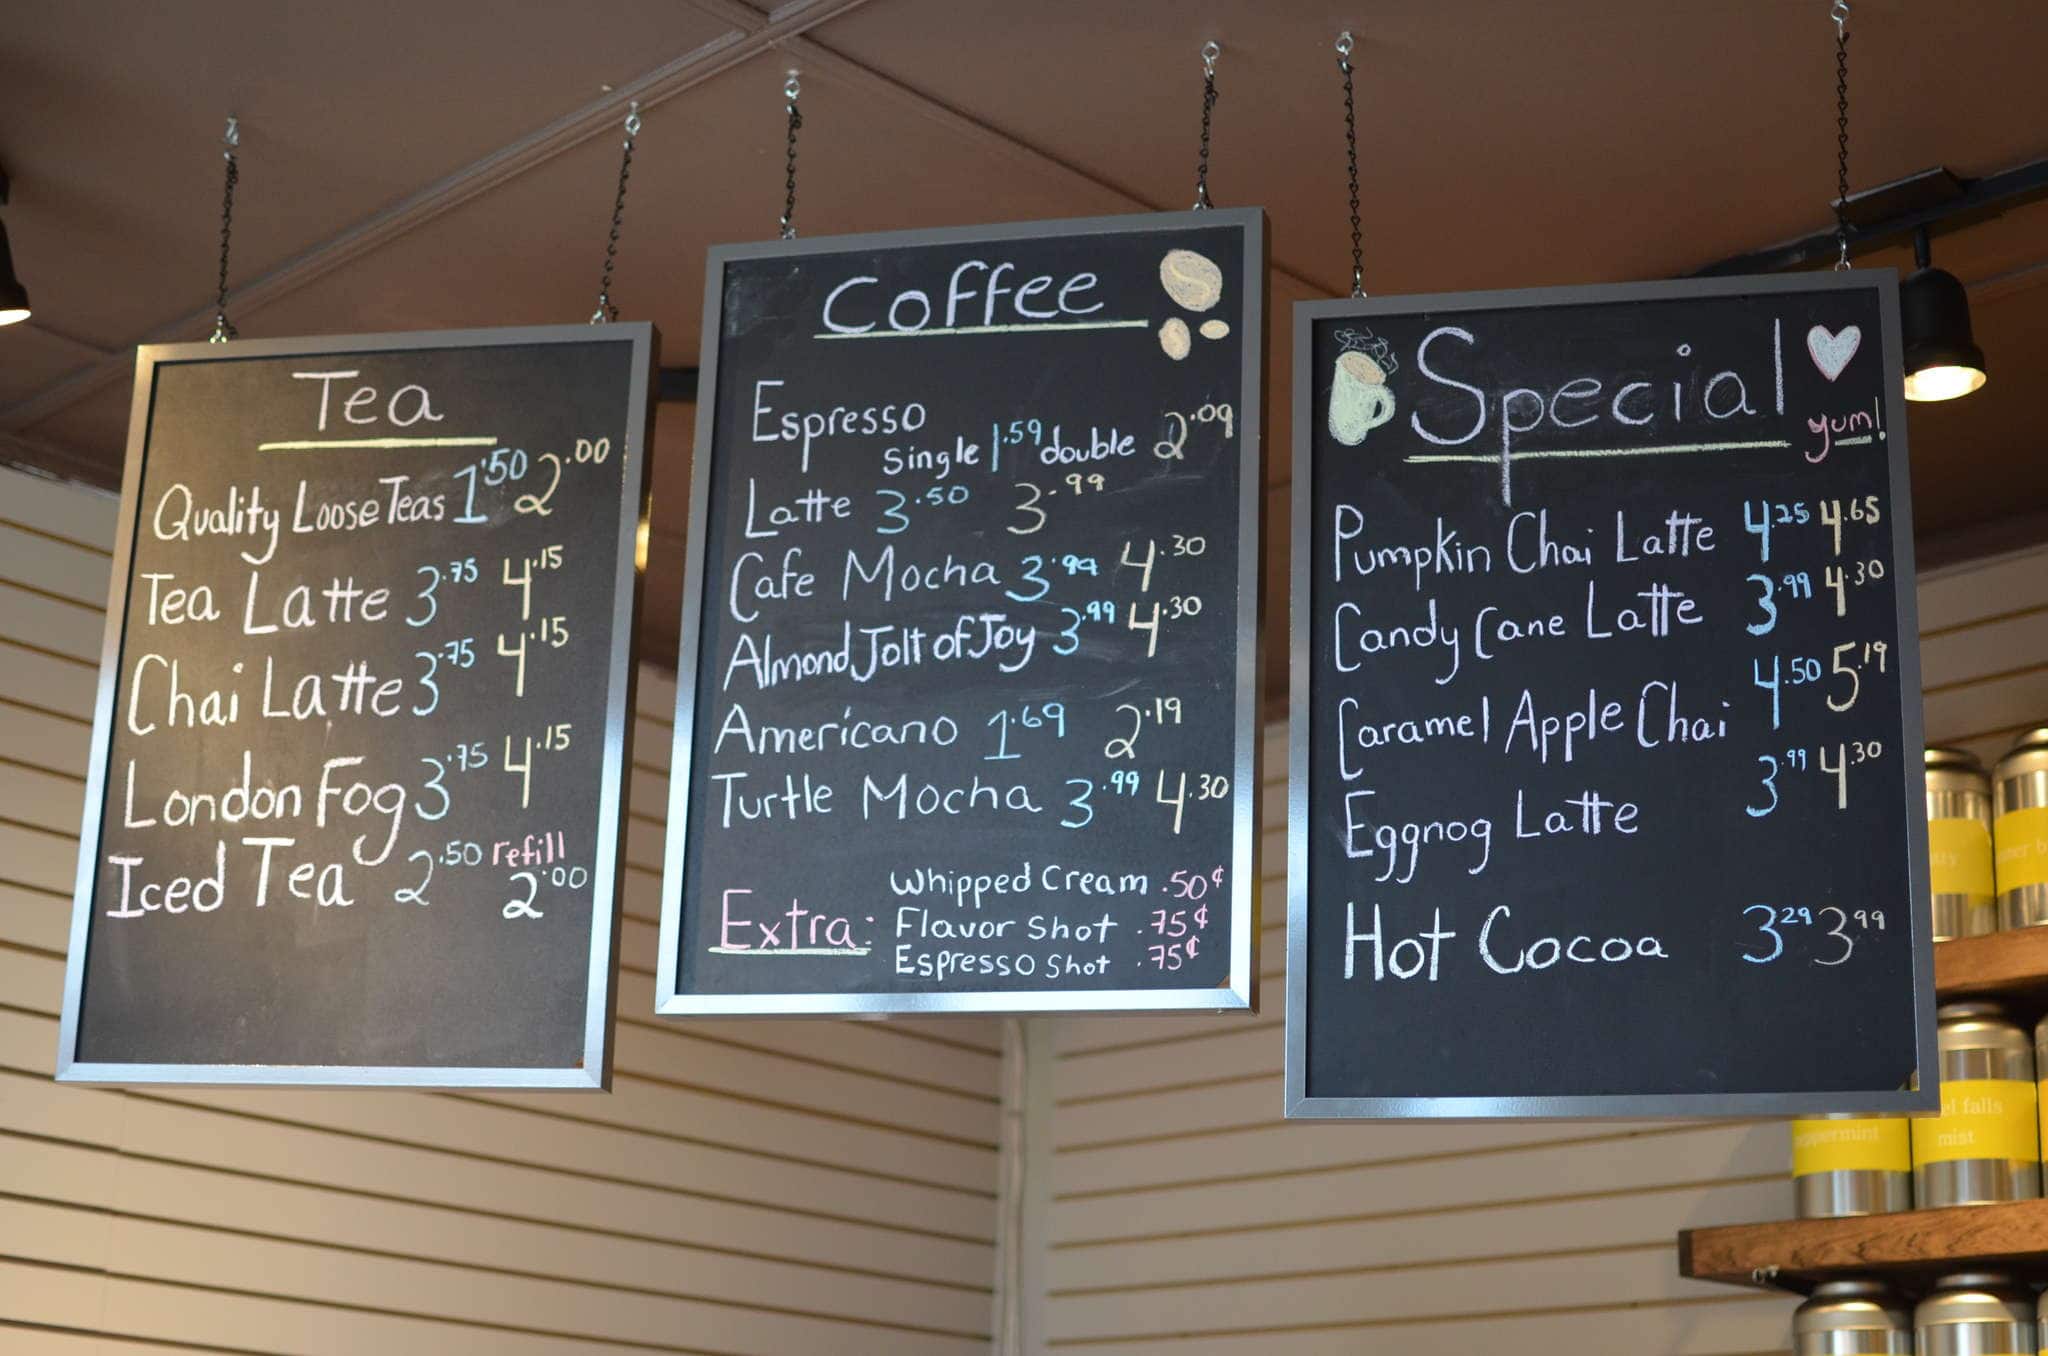 Tea
Quality Loose Teas 1.50 2.00
Tea Latte 3.75 4.15
Chai Latte 3.75 4.15
London Fog 3.75 4.15
Iced Tea 2.50 refill
2.00
Coffee
Espresso
single 1.59 double 2.09
Latte 3.50 3.99
Cafe Mocha 3.99 4.30
Almond Jolt of Joy 3.99 4.30
Americano 1.69 2.19
Turtle Mocha 3.99 4.30
Extra:
Whipped Cream .50¢
Flavor Shot .75¢
Espresso Shot .75¢
Special
yum!
Pumpkin Chai Latte 4.25 4.65
Candy Cane Latte 3.99 4.30
Caramel Apple Chai 4.50 5.19
Eggnog Latte 3.99 4.30
Hot Cocoa 3.29 3.99
falls
mist